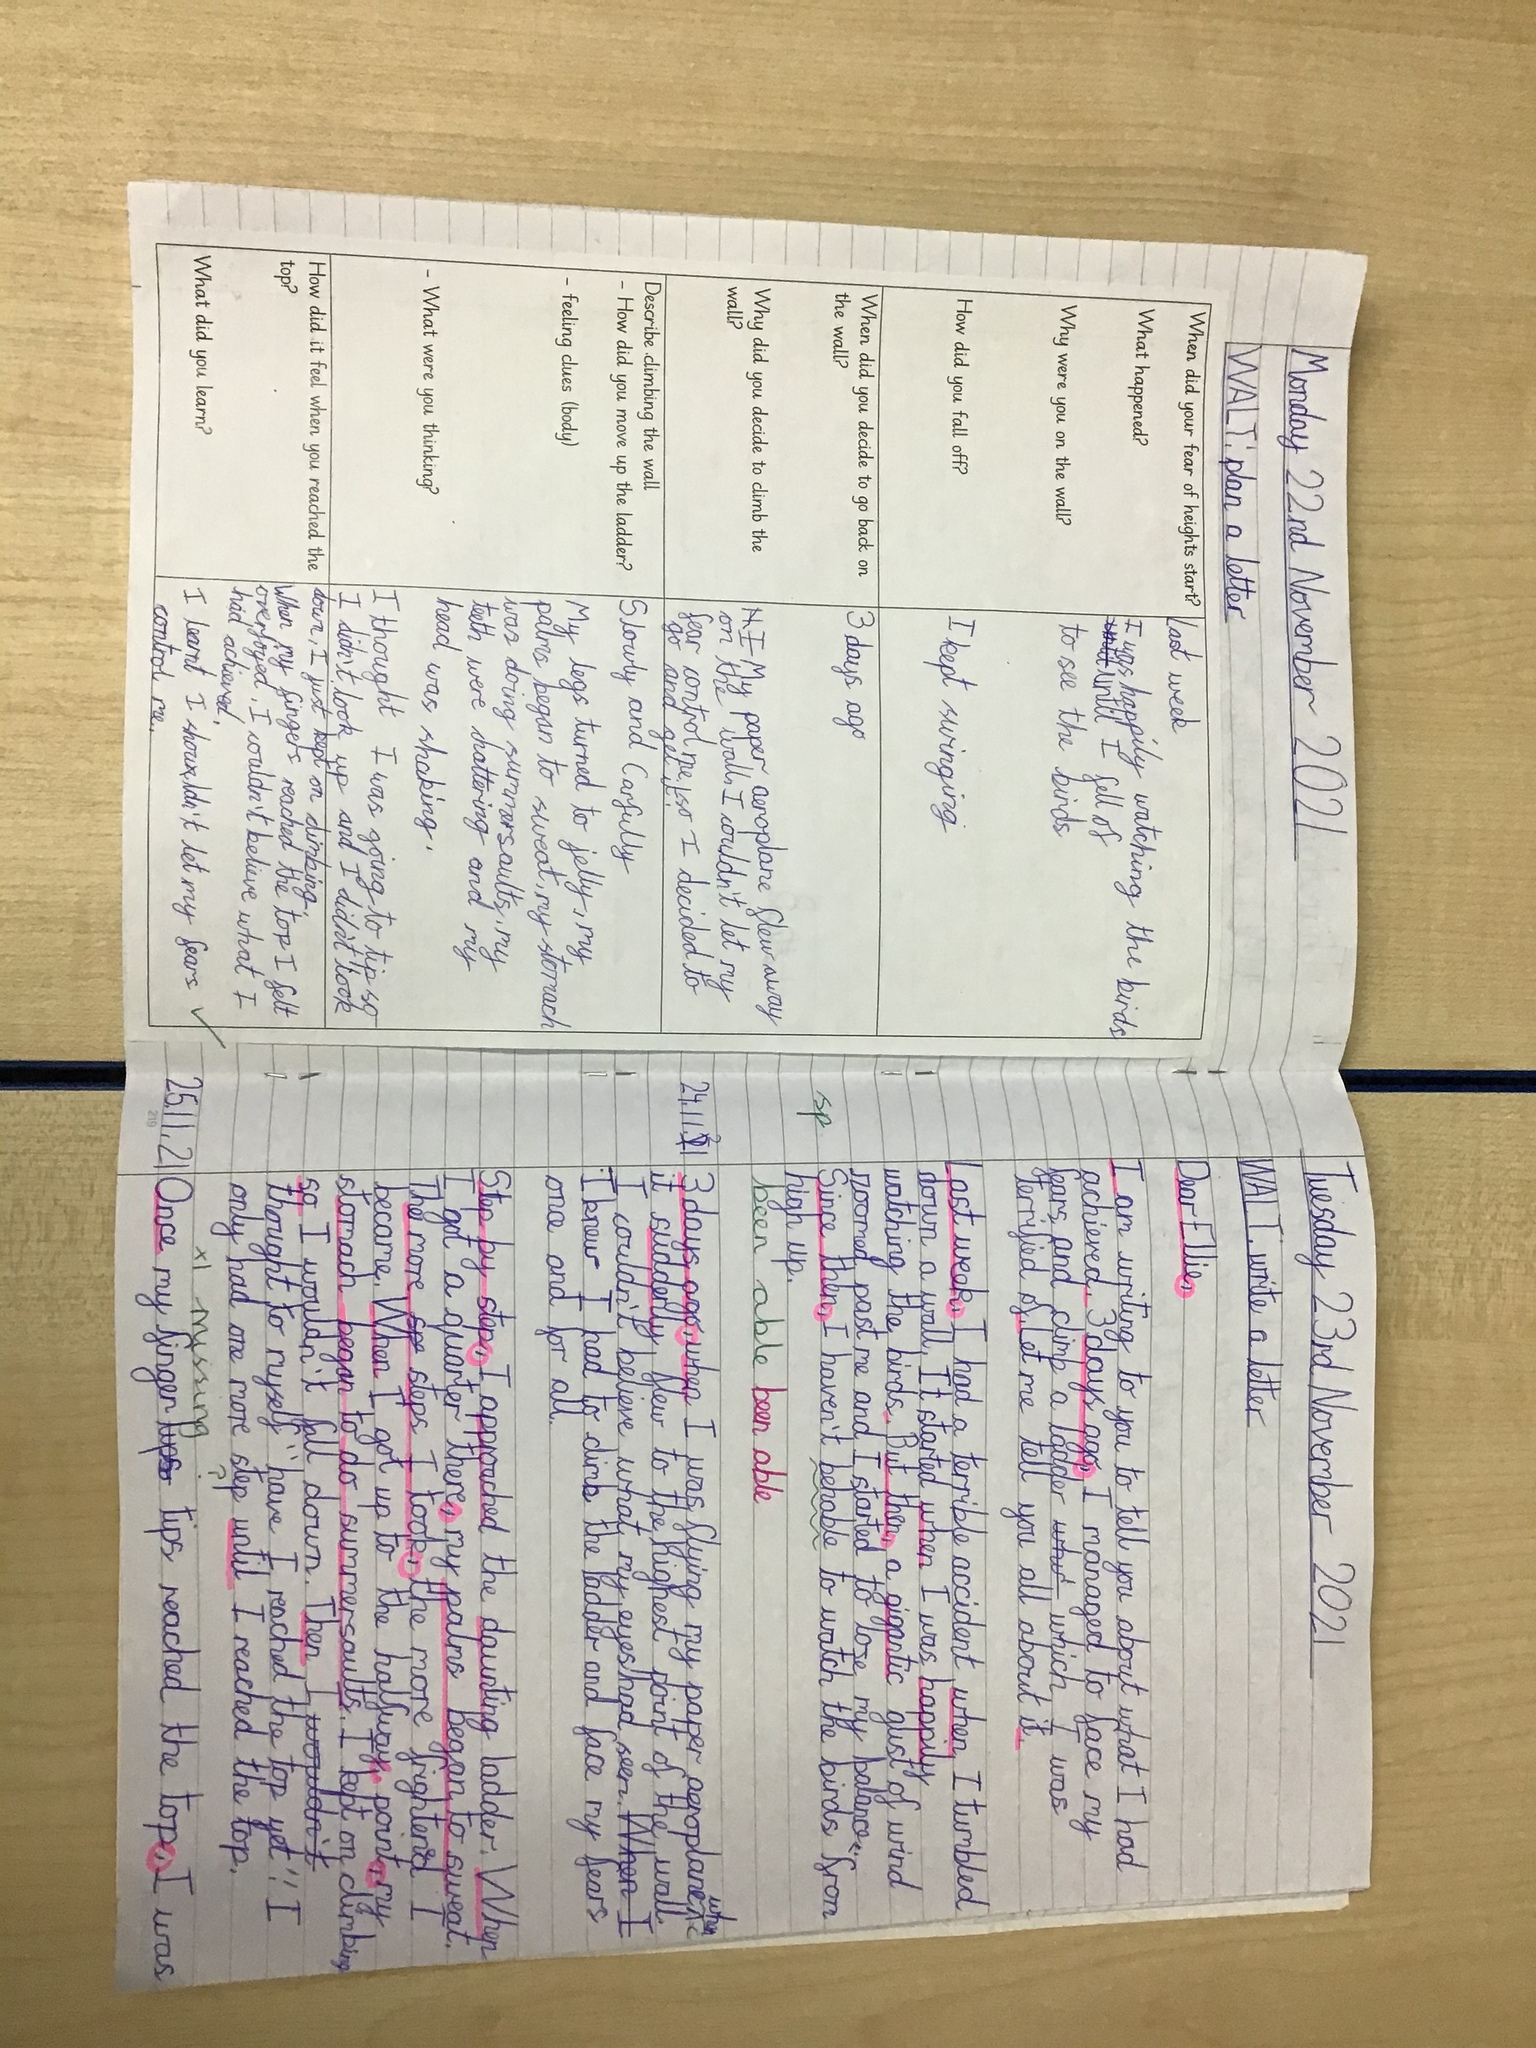 Monday 22nd November 2021
WALT: plan a letter
When did your fear of heights start?
Last week
What happened?
I was happily watching the birds
until I fell of
Why were you on the wall?
to see the birds
How did you fall off?
I kept swinging
When did you decide to go back on
the wall?
3 days ago
Why did you decide to climb the
wall?
My paper aeroplane flew away
on the wall. I couldn't let my
fear control me, so I decided to
go and get it.
Describe climbing the wall
- How did you move up the ladder?
Slowly and Carfully
- feeling clues (body)
My legs turned to jelly, my
palms began to sweat, my stomach
was doing summersaults, my
teeth were chattering and my
head was shaking.
- What were you thinking?
I thought I was going to tip so
I didn't look up and I didn't look
down, I just kept on climbing.
How did it feel when you reached the
top?
When my fingers reached the top I felt
overjoyed, I couldn't believe what I
had achieved.
What did you learn?
I learnt I shouldn't let my fears
control me.
Tuesday 23rd November 2021
WALT: write a letter
Dear Ellie,
I am writing to you to tell you about what I had
achieved. 3 days ago, I managed to face my
fears and climb a ladder which I was
terrified of. Let me tell you all about it.
Last week, I had a terrible accident when I tumbled
down a wall. It started when I was happily
watching the birds. But then, a gigantic gust of wind
zoomed past me and I started to lose my balance.
Since then, I haven't behable to watch the birds from
sp
high up.
been able been able
24.11.21
3 days ago, when I was flying my paper aeroplane when
it suddenly flew to the highest point of the wall.
I couldn't believe what my eyes had seen. When I
I knew I had to climb the ladder and face my fears
once and for all.
Step by step, I approched the daunting ladder. When
I got a quarter there, my palms began to sweat.
The more steps I took, the more frightened I
became. When I got up to the halfway point, my
stomach began to do summersaults. I kept on climbing
so I wouldn't fall down. Then I wouldn't
thought to myself "have I reached the top yet" I
only had one more step until I reached the top.
x1 missing ?
25.11.21
Once my finger tips reached the top, I was